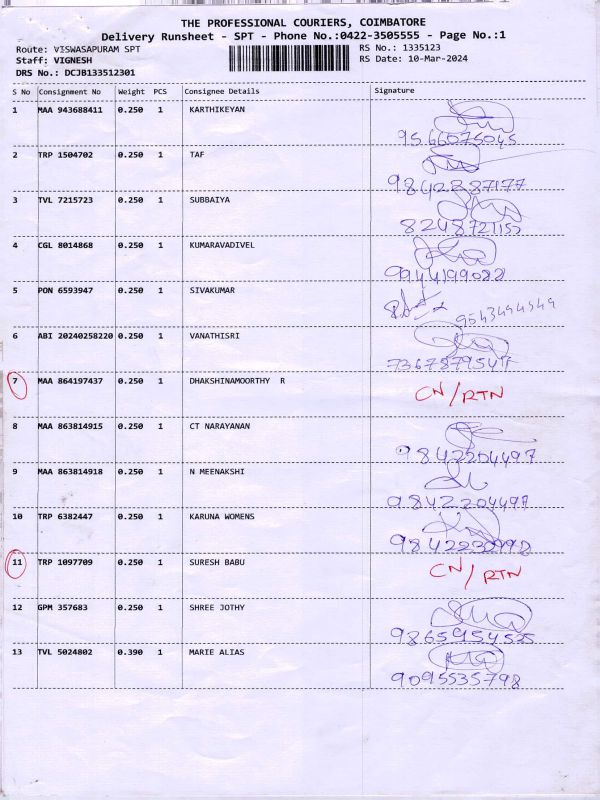 THE PROFESSIONAL COURIERS, COIMBATORE
Delivery Runsheet - SPT - Phone No.:0422-3505555 - Page No.:1
Route: VISWASAPURAM SPT
RS No.: 1335123
Staff: VIGNESH
RS Date: 10-Mar-2024
DRS No.: DCJB133512301
S No Consignment No Weight PCS Consignee Details Signature
1 MAA 943688411 0.250 1 KARTHIKEYAN
9566075045
2 TRP 1504702 0.250 1 TAF
9842287177
3 TVL 7215723 0.250 1 SUBBAIYA
4 CGL 8014868 0.250 1 KUMARAVADIVEL
9944199022
5 PON 6593947 0.250 1 SIVAKUMAR
6 ABI 20240258220 0.250 1 VANATHISRI
7 MAA 864197437 0.250 1 DHAKSHINAMOORTHY R CN/RTN
8 MAA 863814915 0.250 1 CT NARAYANAN
9842204497
9 MAA 863814918 0.250 1 N MEENAKSHI
9842204497
10 TRP 6382447 0.250 1 KARUNA WOMENS
11 TRP 1097709 0.250 1 SURESH BABU CN/RTN
12 GPM 357683 0.250 1 SHREE JOTHY
13 TVL 5024802 0.390 1 MARIE ALIAS
9095535798